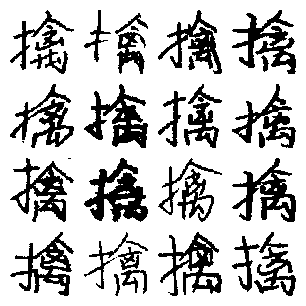 擒擒擒擒
擒擒擒擒
擒擒擒擒
擒擒擒擒